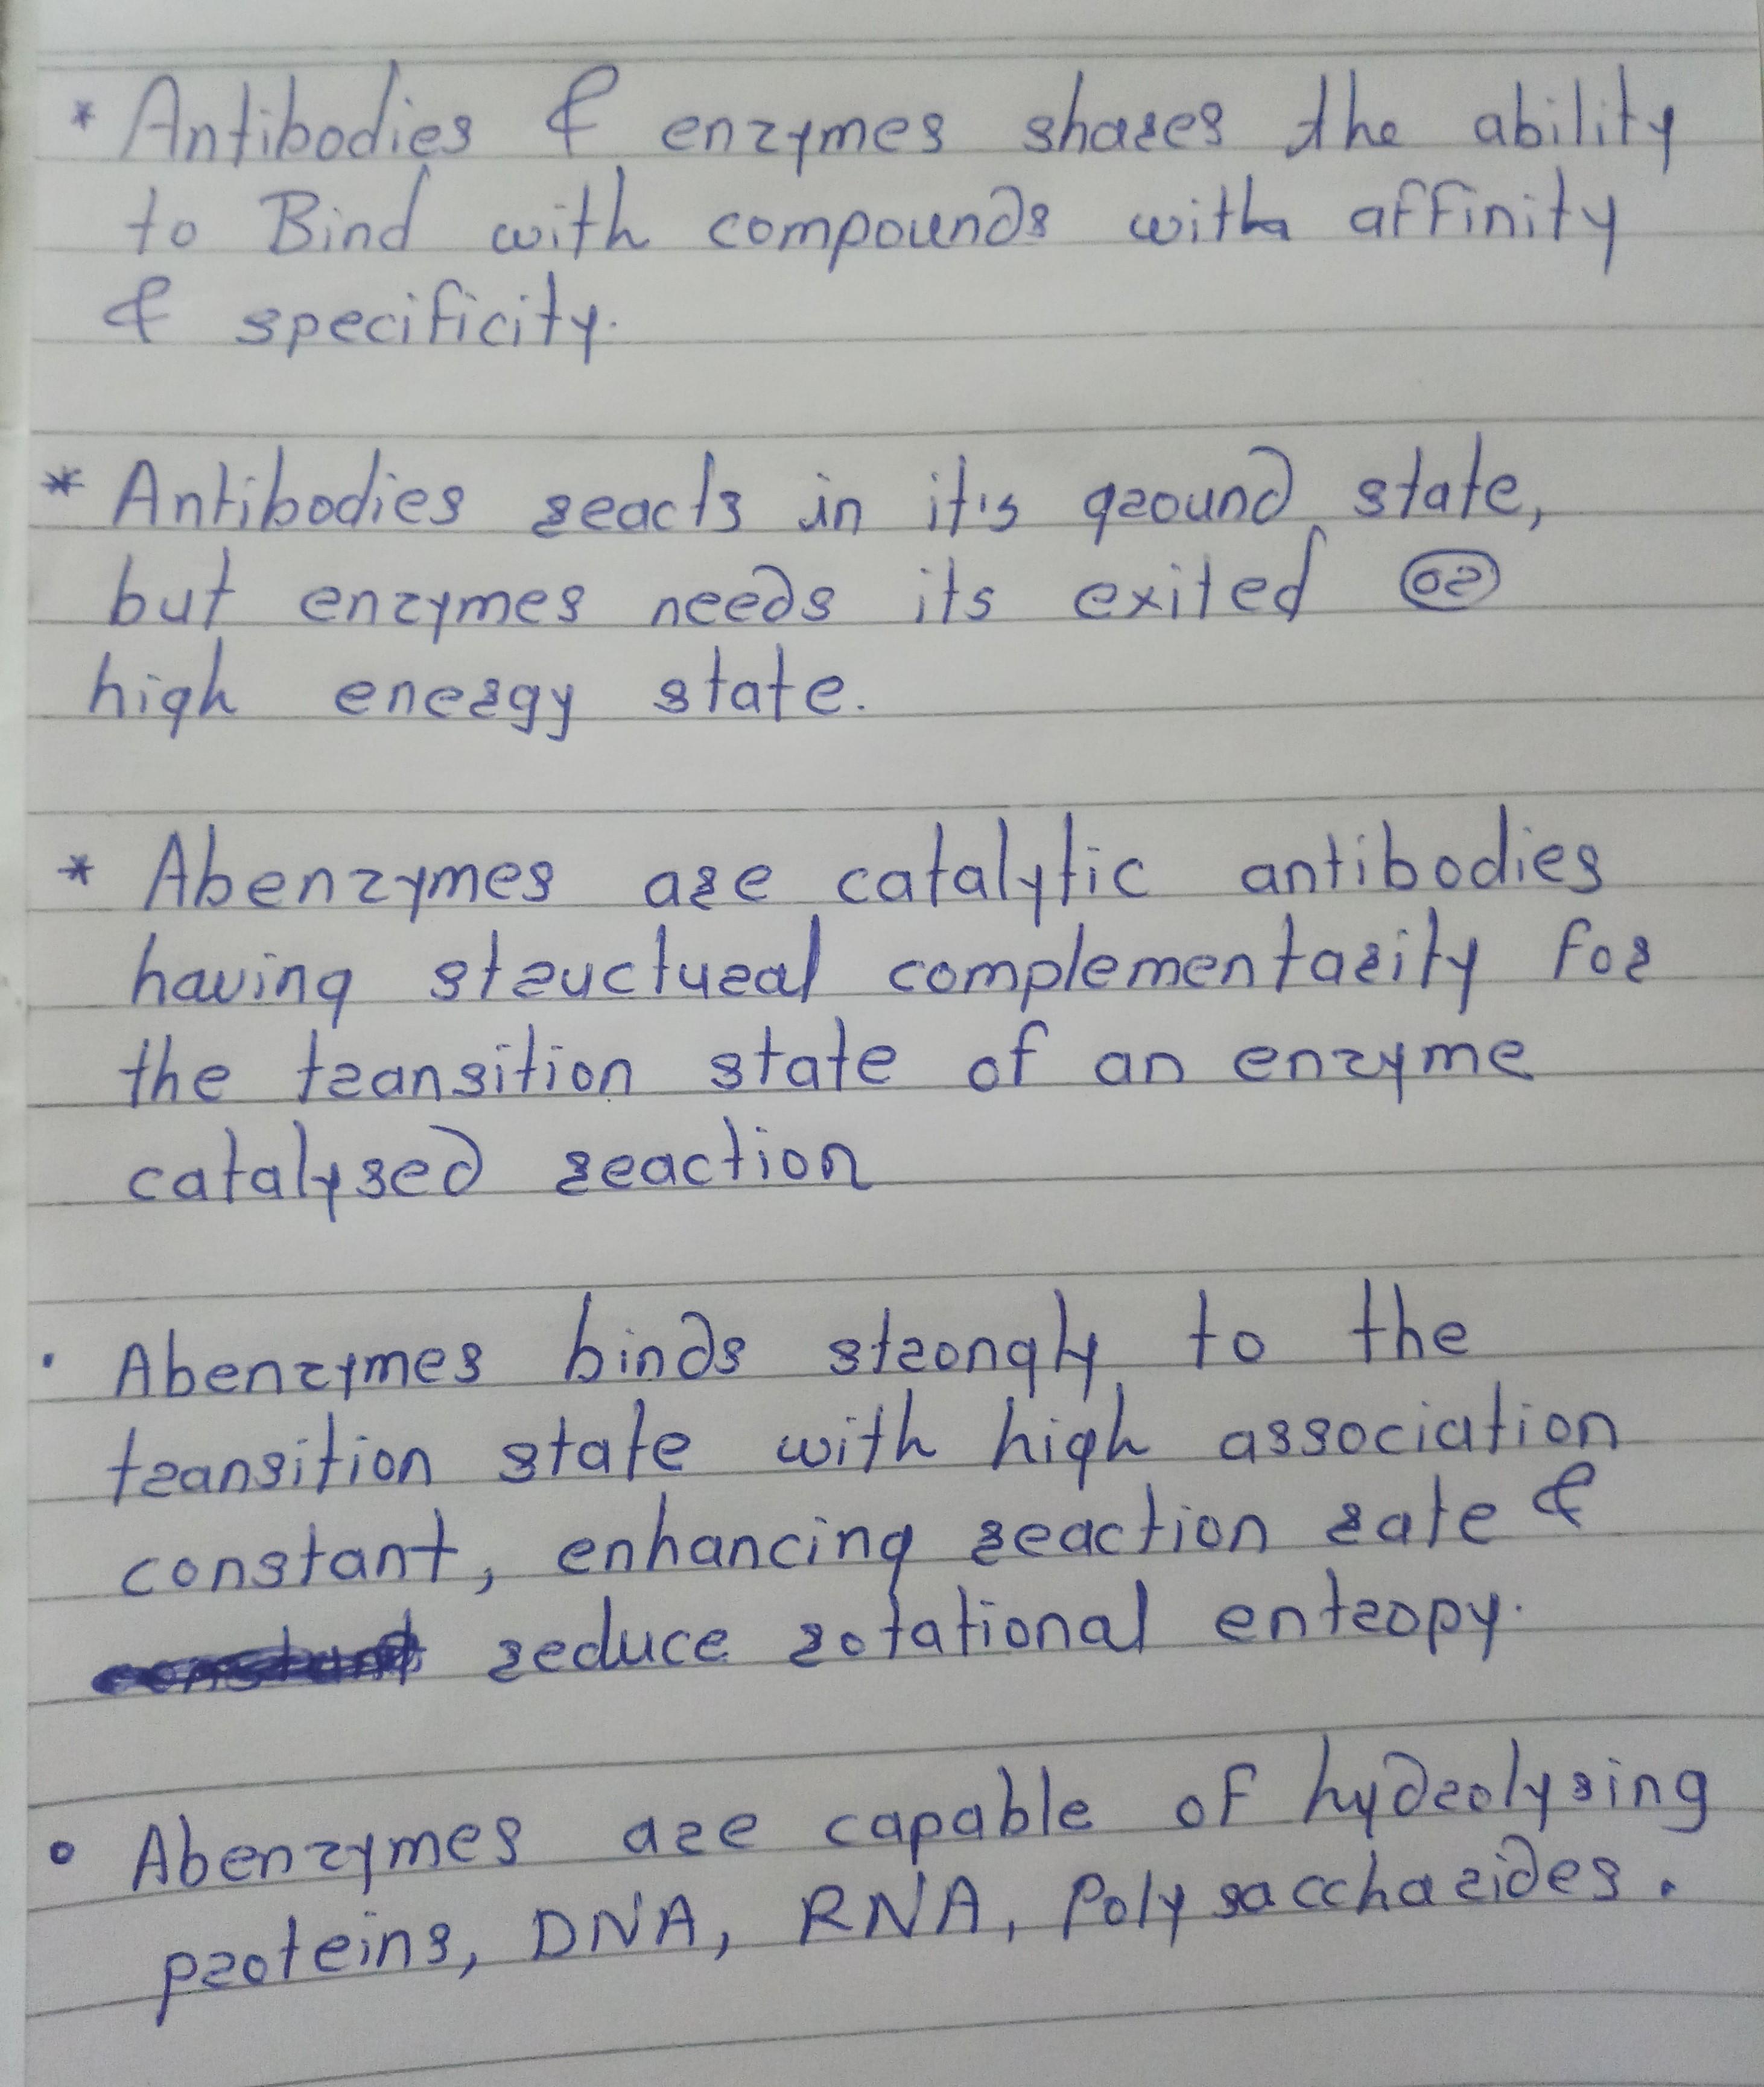 * Antibodies & enzymes shares the ability
to Bind with compounds with affinity
& specificity.
* Antibodies reacts in it's ground state,
but enzymes needs its exited or
high energy state.
* Abenzymes are catalytic antibodies
having structural complementarity for
the transition state of an enzyme
catalysed reaction
• Abenzymes binds strongly to the
transition state with high association
constant, enhancing reaction rate &
reduce rotational entropy.
• Abenzymes are capable of hydrolysing
proteins, DNA, RNA, Polysaccharides.